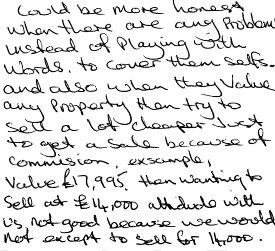 Could be more honest
when there are any Problem
instead of Playing with
words. to cover them selfs.
and also when they Value
any Property then try to
sell a lot cheaper Just
to get a sale because of
commision, exsample,
Value £17,995. then wanting to
sell at £14,000 attitude with
us, not good because we would
not except to sell for 14,000.